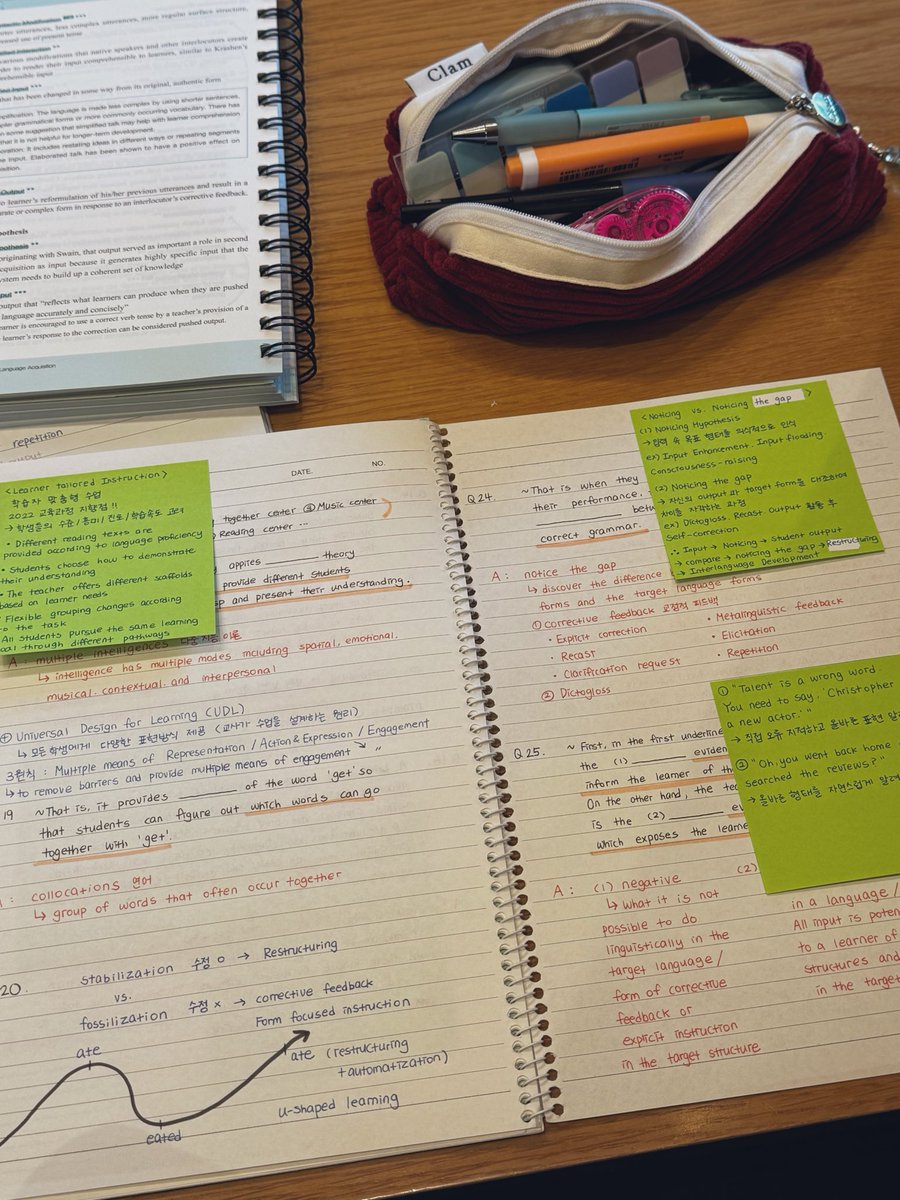 orter utterances, less complex utterances, more regular surface structure,
eased use of present tense
various modifications that native speakers and other interlocutors create
der to render their input comprehensible to learners, similar to Krashen's
rehensible input
that has been changed in some way from its original, authentic form
plification: The language is made less complex by using shorter sentences,
pler grammatical forms or more commonly occurring vocabulary. There has
n some suggestion that simplified talk may help with learner comprehension
that it is not helpful for longer-term development.
oration: It includes restating ideas in different ways or repeating segments
e input. Elaborated talk has been shown to have a positive effect on
sition.
Output **
to learner's reformulation of his/her previous utterances and result in a
rate or complex form in response to an interlocutor's corrective feedback.
pothesis
pothesis **
originating with Swain, that output served as important a role in second
cquisition as input because it generates highly specific input that the
ystem needs to build up a coherent set of knowledge
put ***
output that "reflects what learners can produce when they are pushed
language accurately and concisely"
earner is encouraged to use a correct verb tense by a teacher's provision of a
learner's response to the correction can be considered pushed output.
Language Acquisition
Clam
repetition
<Learner tailored Instruction>
학습자 맞춤형 수업
2022 교육과정 지향점!!
→ 학생들의 수준/흥미/진도/학습속도 고려
• Different reading texts are
provided according to language proficiency
• Students choose how to demonstrate
their understanding
• The teacher offers different scaffolds
based on learner needs
Flexible grouping changes according
to the task
All students pursue the same learning
oal through different pathways
DATE.
NO.
together center ③ Music center
Reading center ...
appires ______ theory
provide different students
p and present their understanding.
A: multiple intelligences 다중지능 이론
↳ intelligence has multiple modes including spatial, emotional,
musical, contextual, and interpersonal
⊕ Universal Design for Learning (UDL)
↳ 모든 학생에게 다양한 표현방식 제공 (교사가 수업을 설계하는 원리)
3원칙: Multiple means of Representation / Action & Expression / Engagement
↳ to remove barriers and provide multiple means of engagement ↘ "
19 ~That is, it provides ______ of the word 'get' so
that students can figure out which words can go
together with 'get'.
: collocations 연어
↳ group of words that often occur together
20. stabilization 수정 o → Restructuring
vs.
fossilization 수정 x → corrective feedback
Form focused instruction
ate
eated
ate (restructuring
+automatization)
u-shaped learning
<Noticing vs. Noticing the gap >
(1) Noticing Hypothesis
→ 입력 속 목표 형태를 의식적으로 인식
ex) Input Enhancement. Input flooding.
Consciousness-raising
(2) Noticing the gap
→ 자신의 output과 target form을 대조하여
차이를 자각하는 과정
ex) Dictogloss. Recast Output 활동 후
Self-correction
∴ Input → Noticing → Student output
→ compare → noticing the gap → Restructuring
→ Interlanguage Development
Q24. ~That is when they
their performance,
______ betw
correct grammar.
A: notice the gap
↳ discover the difference
forms and the target language forms
① corrective feedback 교정적 피드백
• Explicit correction
• Recast
• Clarification request
• Metalinguistic feedback
• Elicitation
• Repetition
② Dictogloss
① "Talent is a wrong word.
You need to say, 'Christopher
a new actor.'"
→ 직접 오류 지적하고 올바른 표현 알려
② "Oh, you went back home
searched the reviews?"
→ 올바른 형태를 자연스럽게 알려
Q25. ~ First, in the first underline
the (1) ______ eviden
inform the learner of th
On the other hand, the tea
is the (2) ______ e
which exposes the learne
A: (1) negative
↳ what it is not
possible to do
linguistically in the
target language /
form of corrective
feedback or
explicit instruction
in the target structure
(2)
in a language /
All input is poten
to a learner of
structures and
in the target